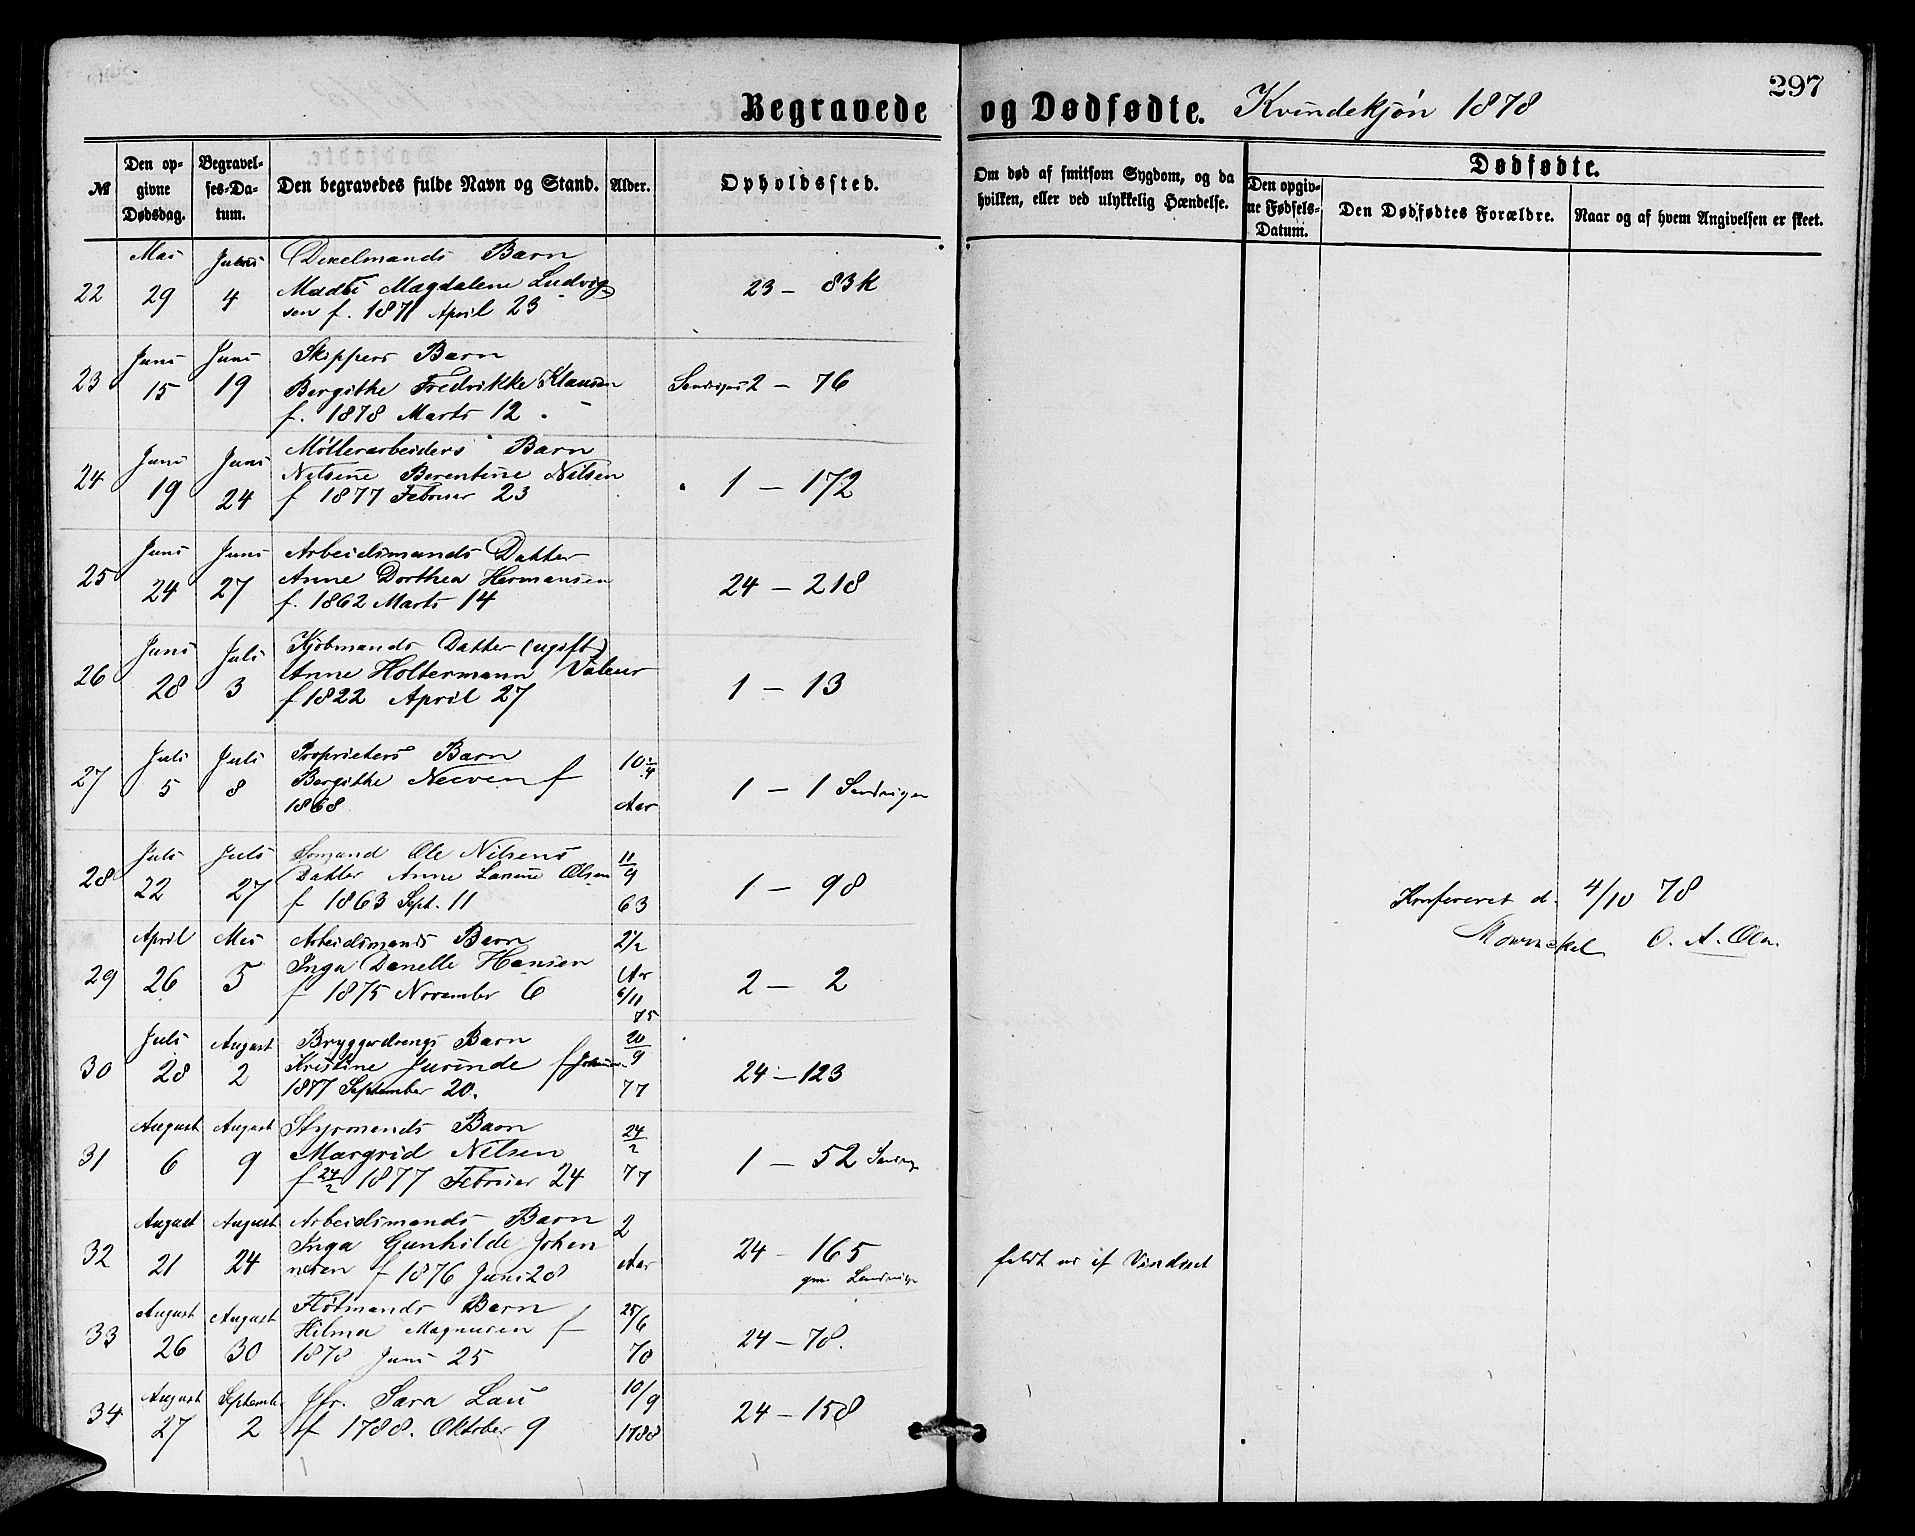 297
Begravede og Dødfødte. Kvindekjøn 1878
№
Den opgivne Dødsdag.
Begravelses-Datum.
Den begravedes fulde Navn og Stand.
Alder.
Opholdssted.
Om død af smitsom Sygdom, og da hvilken, eller ved ulykkelig Hændelse.
Dødfødte.
Den opgivne Fødsels-Datum.
Den Dødfødtes Forældre.
Naar og af hvem Angivelsen er skeet.
22 Mai 29 4 Barn
Magdalene Ludvig 23 – 83k
sen f. 1871 April 23
23 Juni 15 Juni 19 Skippers Barn
Bergithe Fredrikke Klausen 2 – 76
f. 1878 Marts 12
24 Juni 19 Juni 24 Møllerarbeiders Barn
Nilsine Berentine Nilsen 1 – 172
f 1877 Februar 23
25 Juni 24 Juni 27 Arbeidsmands Datter
Anne Dorthea Hermansen 24 – 218
f. 1862 Marts 14
26 Juni 28 Juli 3 Kjøbmands Datter (ugift)
Anne Holtermann Valeur 1 – 13
f 1822 April 27
27 Juli 5 Juli 8 Proprieters Barn 10 1/4 Aar
Bergithe f 1 – 1 Sandvigen
1868
28 Juli 22 Juli 27 Sømand Ole Nilsens 11/9 63
Datter Anne Larine Olsen 1 – 98
f 1863 Sept. 11
Konfereret d. 4/10 78
O. A.
29 April 26 Mai 5 Arbeidsmands Barn 2 1/2 Aar 6/11 75
Inga Danelle Hansen 2 – 2
f 1875 November 6
30 Juli 28 August 2 Bryggerdrengs Barn 20/9 77
Kristine f 24 – 123
1877 September 20.
31 August 6 August 9 Styrmands Barn 24/2 77
Margrid Nilsen 1 – 52
f 24/2 1877 Februar 24
32 August 21 August 24 Arbeidsmands Barn 2 Aar
Inga Gunhilde Johan 24 – 165
nesen f 1876 Juni 28
faldt ud af Vinduet
33 August 26 August 30 Flødmands Barn 25/6 78
Hilma Magnusen f 24 – 78.
1878 Juni 25
34 August 27 Septemb. 2 Jfr. Sara Lau 10/9 1788
f 1788. Oktober 9 24 – 158